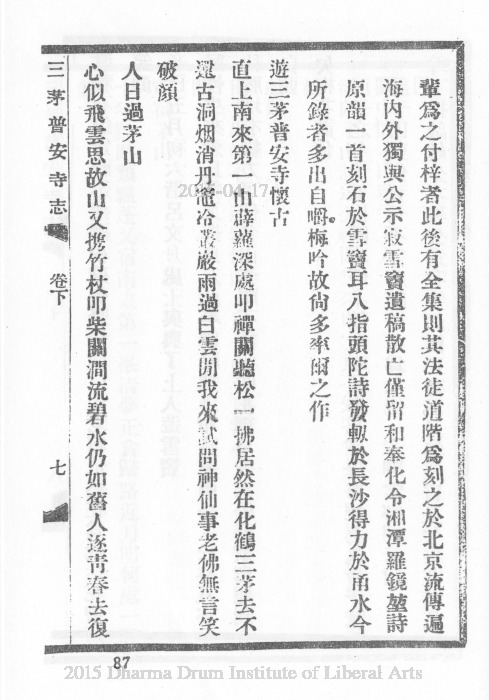 輩爲之付梓者此後有全集則其法徒道階爲刻之於北京流傳遍
海內外獨與公示寂雪竇遺稿散亡僅留和奉化令湘潭羅鏡堃詩
原韻一首刻石於雪竇耳八指頭陀詩發軔於長沙得力於甬水今
所錄者多出自嚼梅吟故尙多率爾之作
遊三茅普安寺懷古
直上南來第一山薜蘿深處叩禪關聽松一拂居然在化鶴三茅去不
還古洞烟消丹竈冷叢巖雨過白雲閒我來試問神仙事老佛無言笑
破顏
人日過茅山
心似飛雲思故山又携竹杖叩柴關澗流碧水仍如舊人逐靑春去復
三茅普安寺志 卷下 七
87
2015 Dharma Drum Institute of Liberal Arts